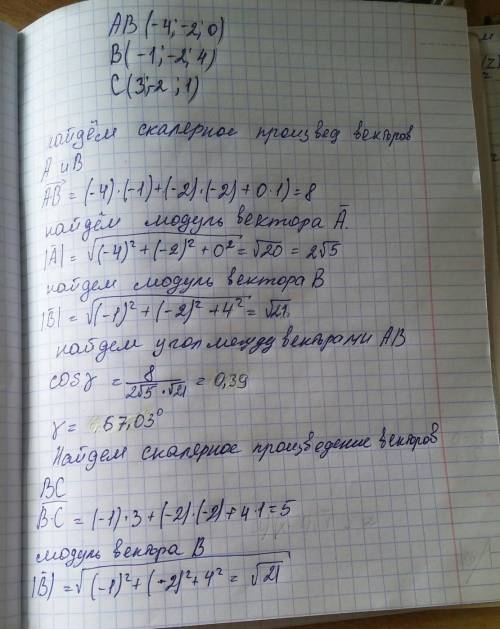 AB (-4; -2; 0)
B(-1; -2; 4)
C(3; -2; 1)
найдём скалерное произвед векторов
A и B
AB = (-4)·(-1)+(-2)·(-2)+0·1)=8
найдём модуль вектора A.
|A| = √(-4)²+(-2)²+0² = √20 = 2√5
найдем модуль вектора B
|B| = √(-1)²+(-2)²+4² = √21.
найдем угол между векторами AB
cosγ = 8/2√5·√21 = 0,39
γ = 67,03°
Найдем скалерное произведение векторов
BC
B·C = (-1)·3+(-2)·(-2)+4·1=5
модуль вектора B
|B| = √(-1)²+(-2)²+4² = √21